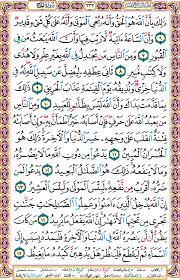 ذَٰلِكَ بِأَنَّ ٱللَّهَ هُوَ ٱلْحَقُّ وَأَنَّهُۥ يُحْىِ ٱلْمَوْتَىٰ وَأَنَّهُۥ عَلَىٰ كُلِّ شَىْءٍ قَدِيرٌ
٦ وَأَنَّ ٱلسَّاعَةَ ءَاتِيَةٌ لَّا رَيْبَ فِيهَا وَأَنَّ ٱللَّهَ يَبْعَثُ مَن فِى
ٱلْقُبُورِ ٧ وَمِنَ ٱلنَّاسِ مَن يُجَٰدِلُ فِى ٱللَّهِ بِغَيْرِ عِلْمٍ وَلَا هُدًى
وَلَا كِتَٰبٍ مُّنِيرٍ ٨ ثَانِىَ عِطْفِهِۦ لِيُضِلَّ عَن سَبِيلِ ٱللَّهِ لَهُۥ فِى
ٱلدُّنْيَا خِزْىٌ وَنُذِيقُهُۥ يَوْمَ ٱلْقِيَٰمَةِ عَذَابَ ٱلْحَرِيقِ ٩ ذَٰلِكَ
بِمَا قَدَّمَتْ يَدَاكَ وَأَنَّ ٱللَّهَ لَيْسَ بِظَلَّٰمٍ لِّلْعَبِيدِ ١٠ وَمِنَ ٱلنَّاسِ
مَن يَعْبُدُ ٱللَّهَ عَلَىٰ حَرْفٍ فَإِنْ أَصَابَهُۥ خَيْرٌ ٱطْمَأَنَّ بِهِۦ وَإِنْ أَصَابَتْهُ
فِتْنَةٌ ٱنقَلَبَ عَلَىٰ وَجْهِهِۦ خَسِرَ ٱلدُّنْيَا وَٱلْءَاخِرَةَ ذَٰلِكَ هُوَ
ٱلْخُسْرَانُ ٱلْمُبِينُ ١١ يَدْعُوا۟ مِن دُونِ ٱللَّهِ مَا لَا يَضُرُّهُۥ
وَمَا لَا يَنفَعُهُۥ ذَٰلِكَ هُوَ ٱلضَّلَٰلُ ٱلْبَعِيدُ ١٢ يَدْعُوا۟ لَمَن ضَرُّهُۥٓ
أَقْرَبُ مِن نَّفْعِهِۦ لَبِئْسَ ٱلْمَوْلَىٰ وَلَبِئْسَ ٱلْعَشِيرُ ١٣
إِنَّ ٱللَّهَ يُدْخِلُ ٱلَّذِينَ ءَامَنُوا۟ وَعَمِلُوا۟ ٱلصَّٰلِحَٰتِ جَنَّٰتٍ تَجْرِى
مِن تَحْتِهَا ٱلْأَنْهَٰرُ إِنَّ ٱللَّهَ يَفْعَلُ مَا يُرِيدُ ١٤ مَن كَانَ
يَظُنُّ أَن لَّن يَنصُرَهُ ٱللَّهُ فِى ٱلدُّنْيَا وَٱلْءَاخِرَةِ فَلْيَمْدُدْ بِسَبَبٍ إِلَى
ٱلسَّمَآءِ ثُمَّ لْيَقْطَعْ فَلْيَنظُرْ هَلْ يُذْهِبَنَّ كَيْدُهُۥ مَا يَغِيظُ ١٥